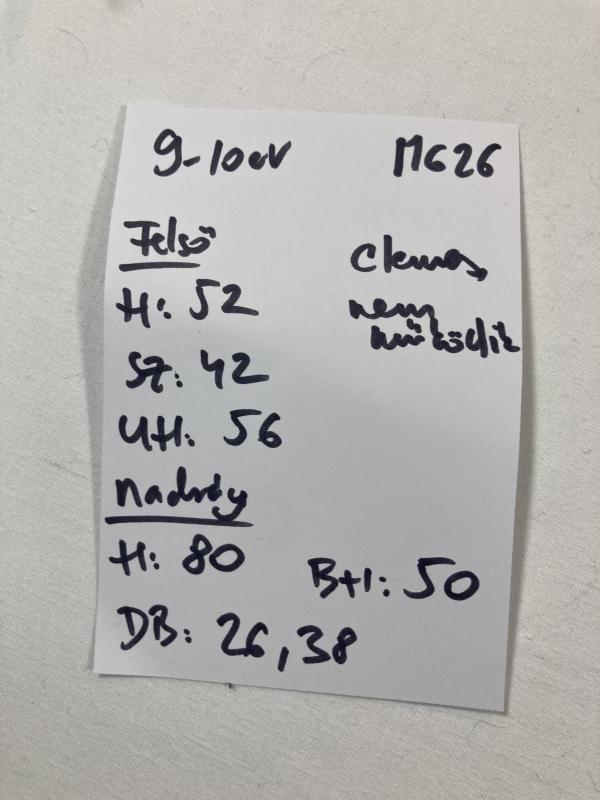 9-10év MG26
Felső
H: 52
SZ: 42
UH: 56
Nadrág
H: 80
BH: 50
DB: 26,38
elemes,
nem
működik